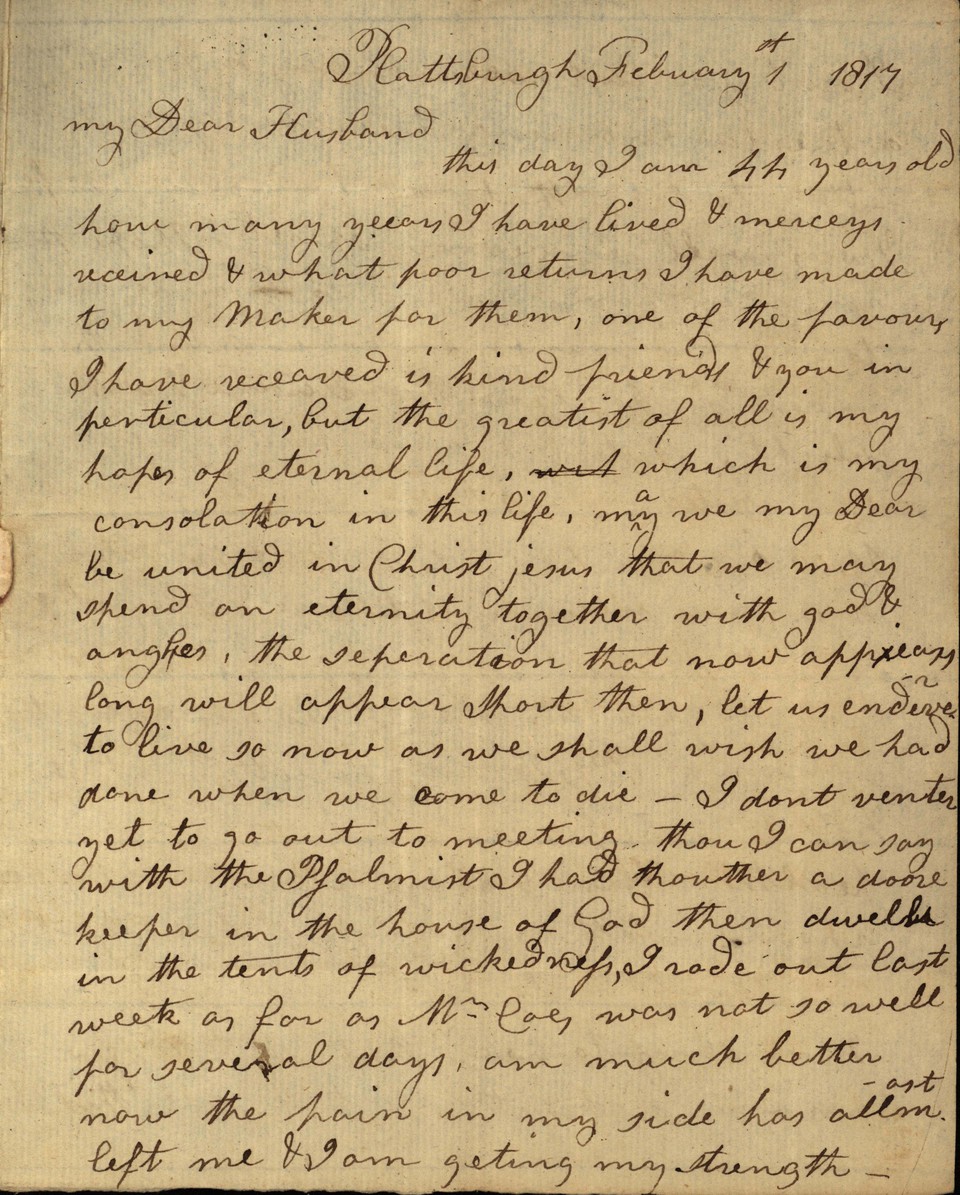 Plattsburgh February 1st 1817
my Dear Husband
this day I am 44 years old
how many yeears I have lived & merceys
receined & what poor returns I have made
to my Maker for them, one of the favours
I have receaved is kind friends & you in
perticular, but the greatist of all is my
hopes of eternal life, wit which is my
consolation in this life, may we my Dear
be united in Christ jesus that we may
spend an eternity together with god &
angles, the seperation that now appiears
long will appear short then, let us endever
to live so now as we shall wish we had
done when we come to die - I dont venter
yet to go out to meeting thou I can say
with the Psalmist I had thouther a doore
keeper in the house of God then dwell
in the tents of wickedness, I rode out last
week as far as Mr Coes was not so well
for several days, am much better
now the pain in my side has allmost
left me & I am geting my strength -